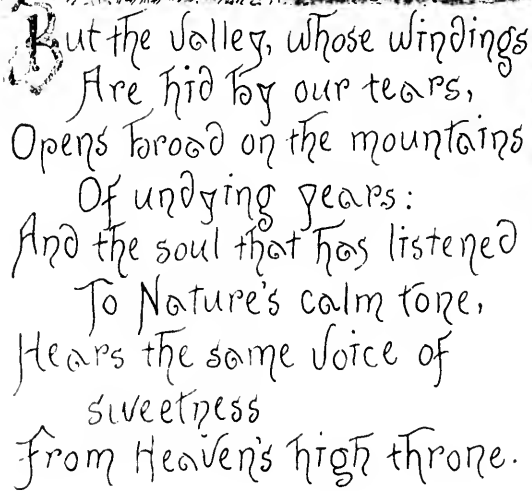 But the Valley, whose windings
Are hid by our tears,
Opens broad on the mountains
Of undying years:
And the soul that has listened
To Nature's calm tone,
Hears the same voice of
sweetness
From Heaven's high throne.